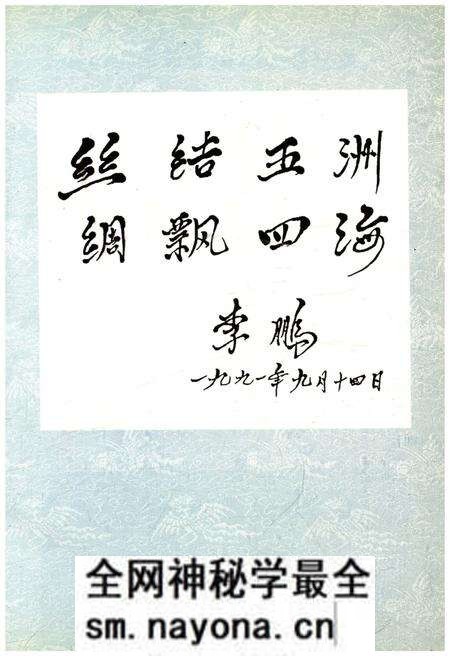 絲结五洲
綢飘四海
李鹏
一九九一年九月十四日
全网神秘学最全
sm.nayona.cn